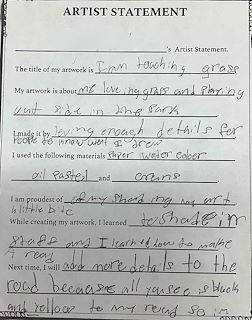 ARTIST STATEMENT
's Artist Statement.
The title of my artwork is I am touching grass
My artwork is about me loveing grass and playing
out side in the Park
I made it by leving enough details for
People to know what I drew
I used the following materials super water coler
oil pasted and crans
I am proudest of my shading my art
a little bite
While creating my artwork, I learned to shade in
stuff and I learned how to make
a road
Next time, I will add more details to the
road because all you see is black
and yellow to my road so im